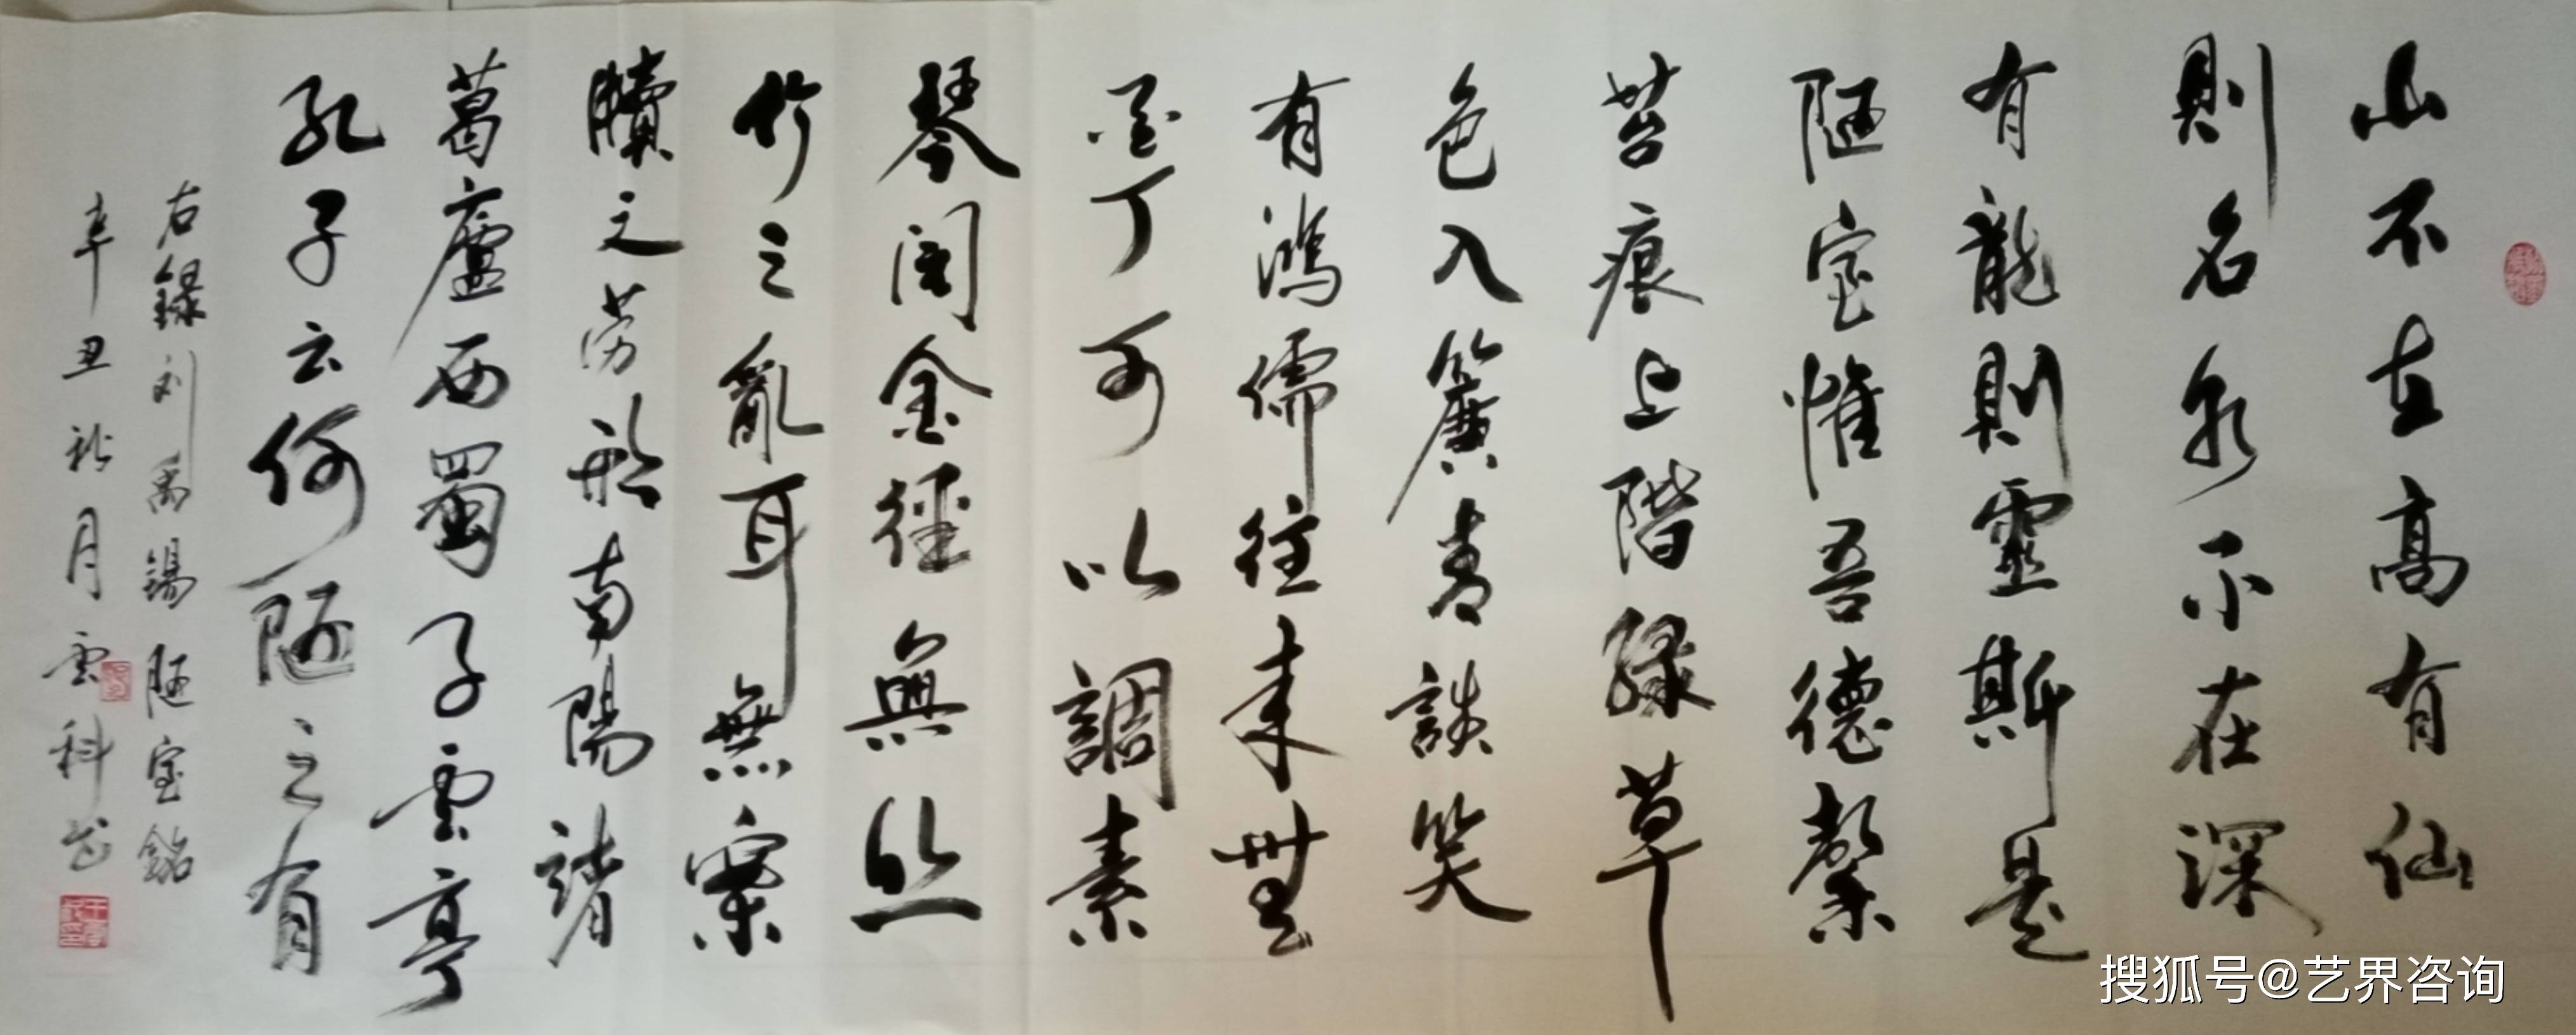 山不在高有仙
則名水不在深
有龍則靈斯是
陋室惟吾德馨
苔痕上階緑草
色入簾青談笑
有鴻儒往来無
丁可以調素
琴閱金徑無丝
竹之亂耳無案
牘之劳形南陽諸
葛廬西蜀子雲亭
孔子云何陋之有
右録刘禹錫陋室銘
辛丑秋月雲科书
搜狐号@艺界咨询